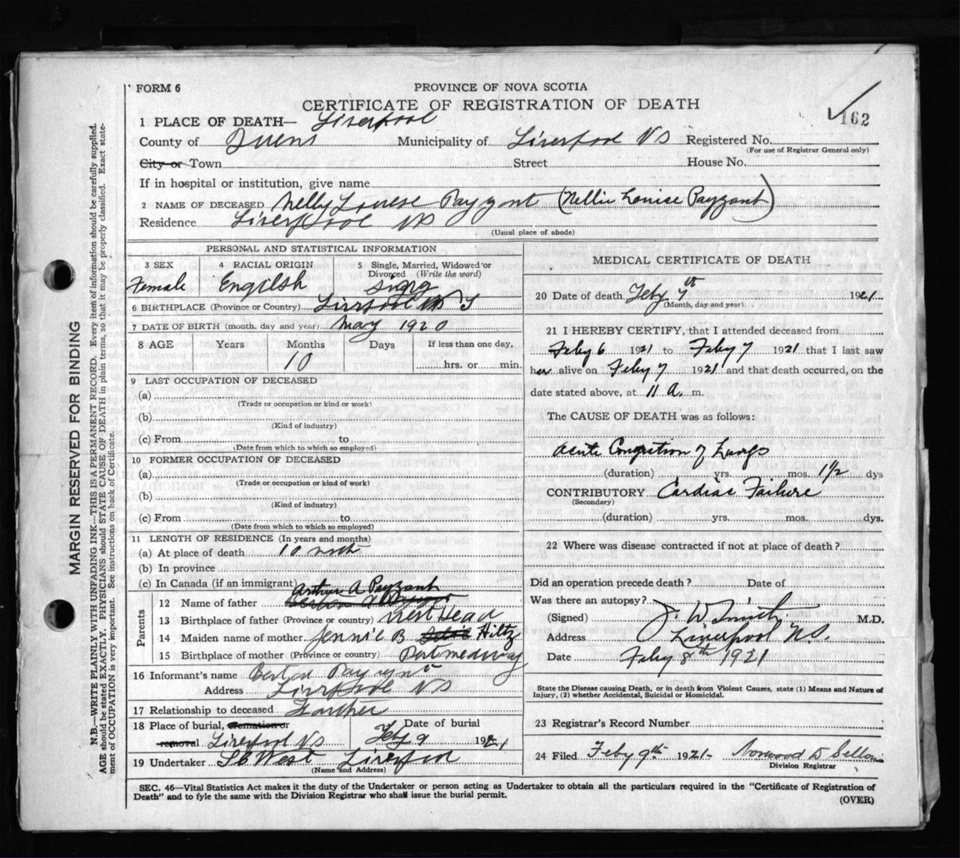 FORM 6
PROVINCE OF NOVA SCOTIA
CERTIFICATE OF REGISTRATION OF DEATH
162
1 PLACE OF DEATH— Liverpool
County of Queens Municipality of Liverpool NS Registered No.
(For use of Registrar General only)
City or Town Street House No.
If in hospital or institution, give name
2 NAME OF DECEASED Nelly Louese Payzant (Nellie Louise Payzant)
Residence Liverpool NS
(Usual place of abode)
PERSONAL AND STATISTICAL INFORMATION
3 SEX 4 RACIAL ORIGIN 5 Single, Married, Widowed or
Divorced (Write the word)
Female Engilsh
6 BIRTHPLACE (Province or Country) Liverpool
7 DATE OF BIRTH (month, day and year) May 1920
8 AGE Years Months Days If less than one day,
10 hrs. or min.
9 LAST OCCUPATION OF DECEASED
(a)
(Trade or occupation or kind or work)
(b)
(Kind of industry)
(c) From to
(Date from which to which so employed)
10 FORMER OCCUPATION OF DECEASED
(a)
(Trade or occupation or kind of work)
(b)
(Kind of industry)
(c) From to
(Date from which to which so employed)
11 LENGTH OF RESIDENCE (In years and months)
(a) At place of death 10
(b) In province
(c) In Canada (if an immigrant)
Parents
Arthur A Payzant
12 Name of father
13 Birthplace of father (Province or country) West Head
14 Maiden name of mother Jennie B Hiltz
15 Birthplace of mother (Province or country) Portmedway
16 Informant's name
Address Liverpool NS
17 Relationship to deceased Farther
18 Place of burial, cremation or Date of burial
removal Liverpool NS Feby 9 1921
19 Undertaker West Liverpool
(Name and Address)
MEDICAL CERTIFICATE OF DEATH
20 Date of death Feby 7th 1921
(Month, day and year)
21 I HEREBY CERTIFY, that I attended deceased from
Feby 6 1921 to Feby 7 1921 that I last saw
her alive on Feby 7 1921 and that death occurred, on the
date stated above, at 11 a. m.
The CAUSE OF DEATH was as follows:
Acute Congestion of Lungs
(duration) yrs. mos. 1½ dys
CONTRIBUTORY Cardiac Failure
(Secondary)
(duration) yrs. mos. dys.
22 Where was disease contracted if not at place of death?
Did an operation precede death? Date of
Was there an autopsy?
(Signed) J. W. Smith M.D.
Address Liverpool N.S.
Date Feby 8th 1921
State the Disease causing Death, or in death from Violent Causes, state (1) Means and Nature of
Injury, (2) whether Accidental, Suicidal or Homicidal.
23 Registrar's Record Number
24 Filed Feby 9th 1921 Norwood D.
Division Registrar
SEC. 46—Vital Statistics Act makes it the duty of the Undertaker or person acting as Undertaker to obtain all the particulars required in the "Certificate of Registration of
Death" and to fyle the same with the Division Registrar who shall issue the burial permit.
(OVER)
MARGIN RESERVED FOR BINDING
N.B.—WRITE PLAINLY WITH UNFADING INK—THIS IS A PERMANENT RECORD. Every item of information should be carefully supplied.
AGE should be stated EXACTLY. PHYSICIANS should STATE CAUSE OF DEATH in plain terms, so that it may be properly classified. Exact state-
ment of OCCUPATION is very important. See instructions on back of Certificate.